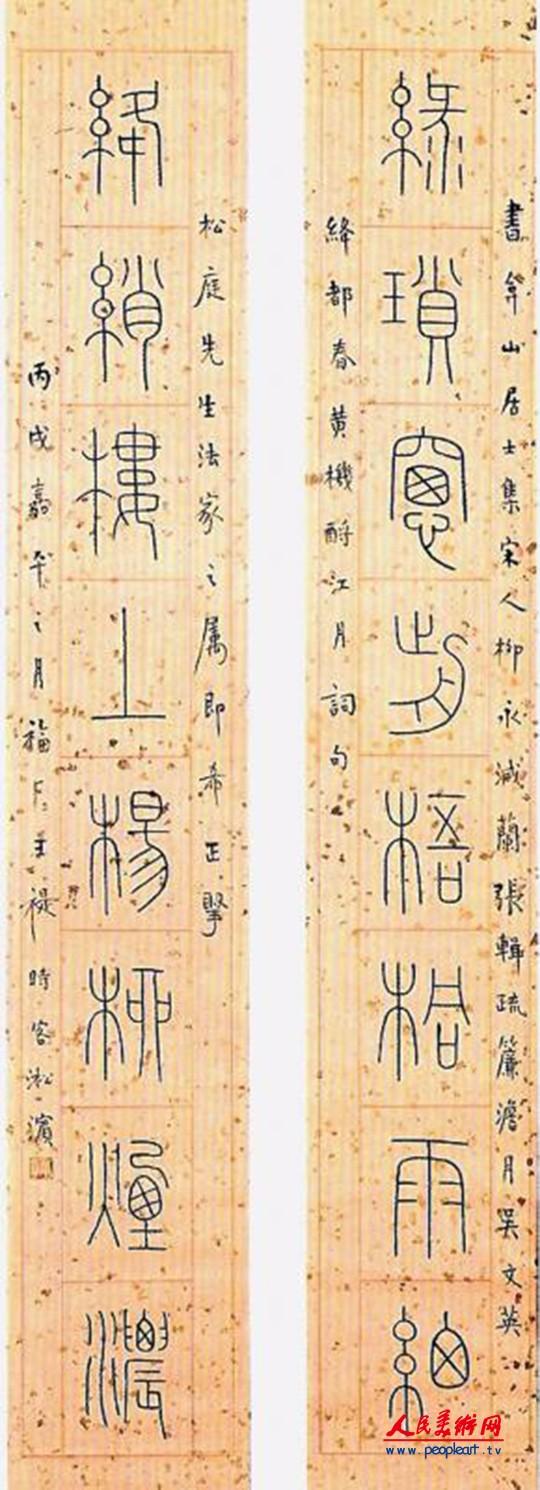 書弇山居士集宋人柳永減蘭張輯疏簾澹月吳文英
綠瑣窻前梧桐雨細
絳都春黃機酹江月詞句
松庭先生法家之属即希正擘
絳綃樓上楊柳煙濃
丙戌嘉平之月福厂王禔時客淞濱
人民美術网
www.peopleart.tv